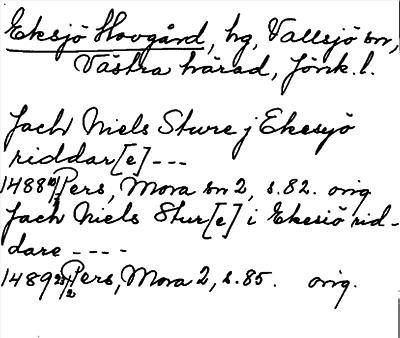 Eksjö Hovgård, hg, Vallsjö sn,
Västra härad, Jönk. l.
Jach Niels Sture j Ekesjö
riddar[e] ---
1488 Pers, Mora sn 2, s. 82. orig
Jach Niels Stur[e] i Ekesiö rid-
dare ----
1489 23/2 Pers, Mora 2, s. 85. orig.